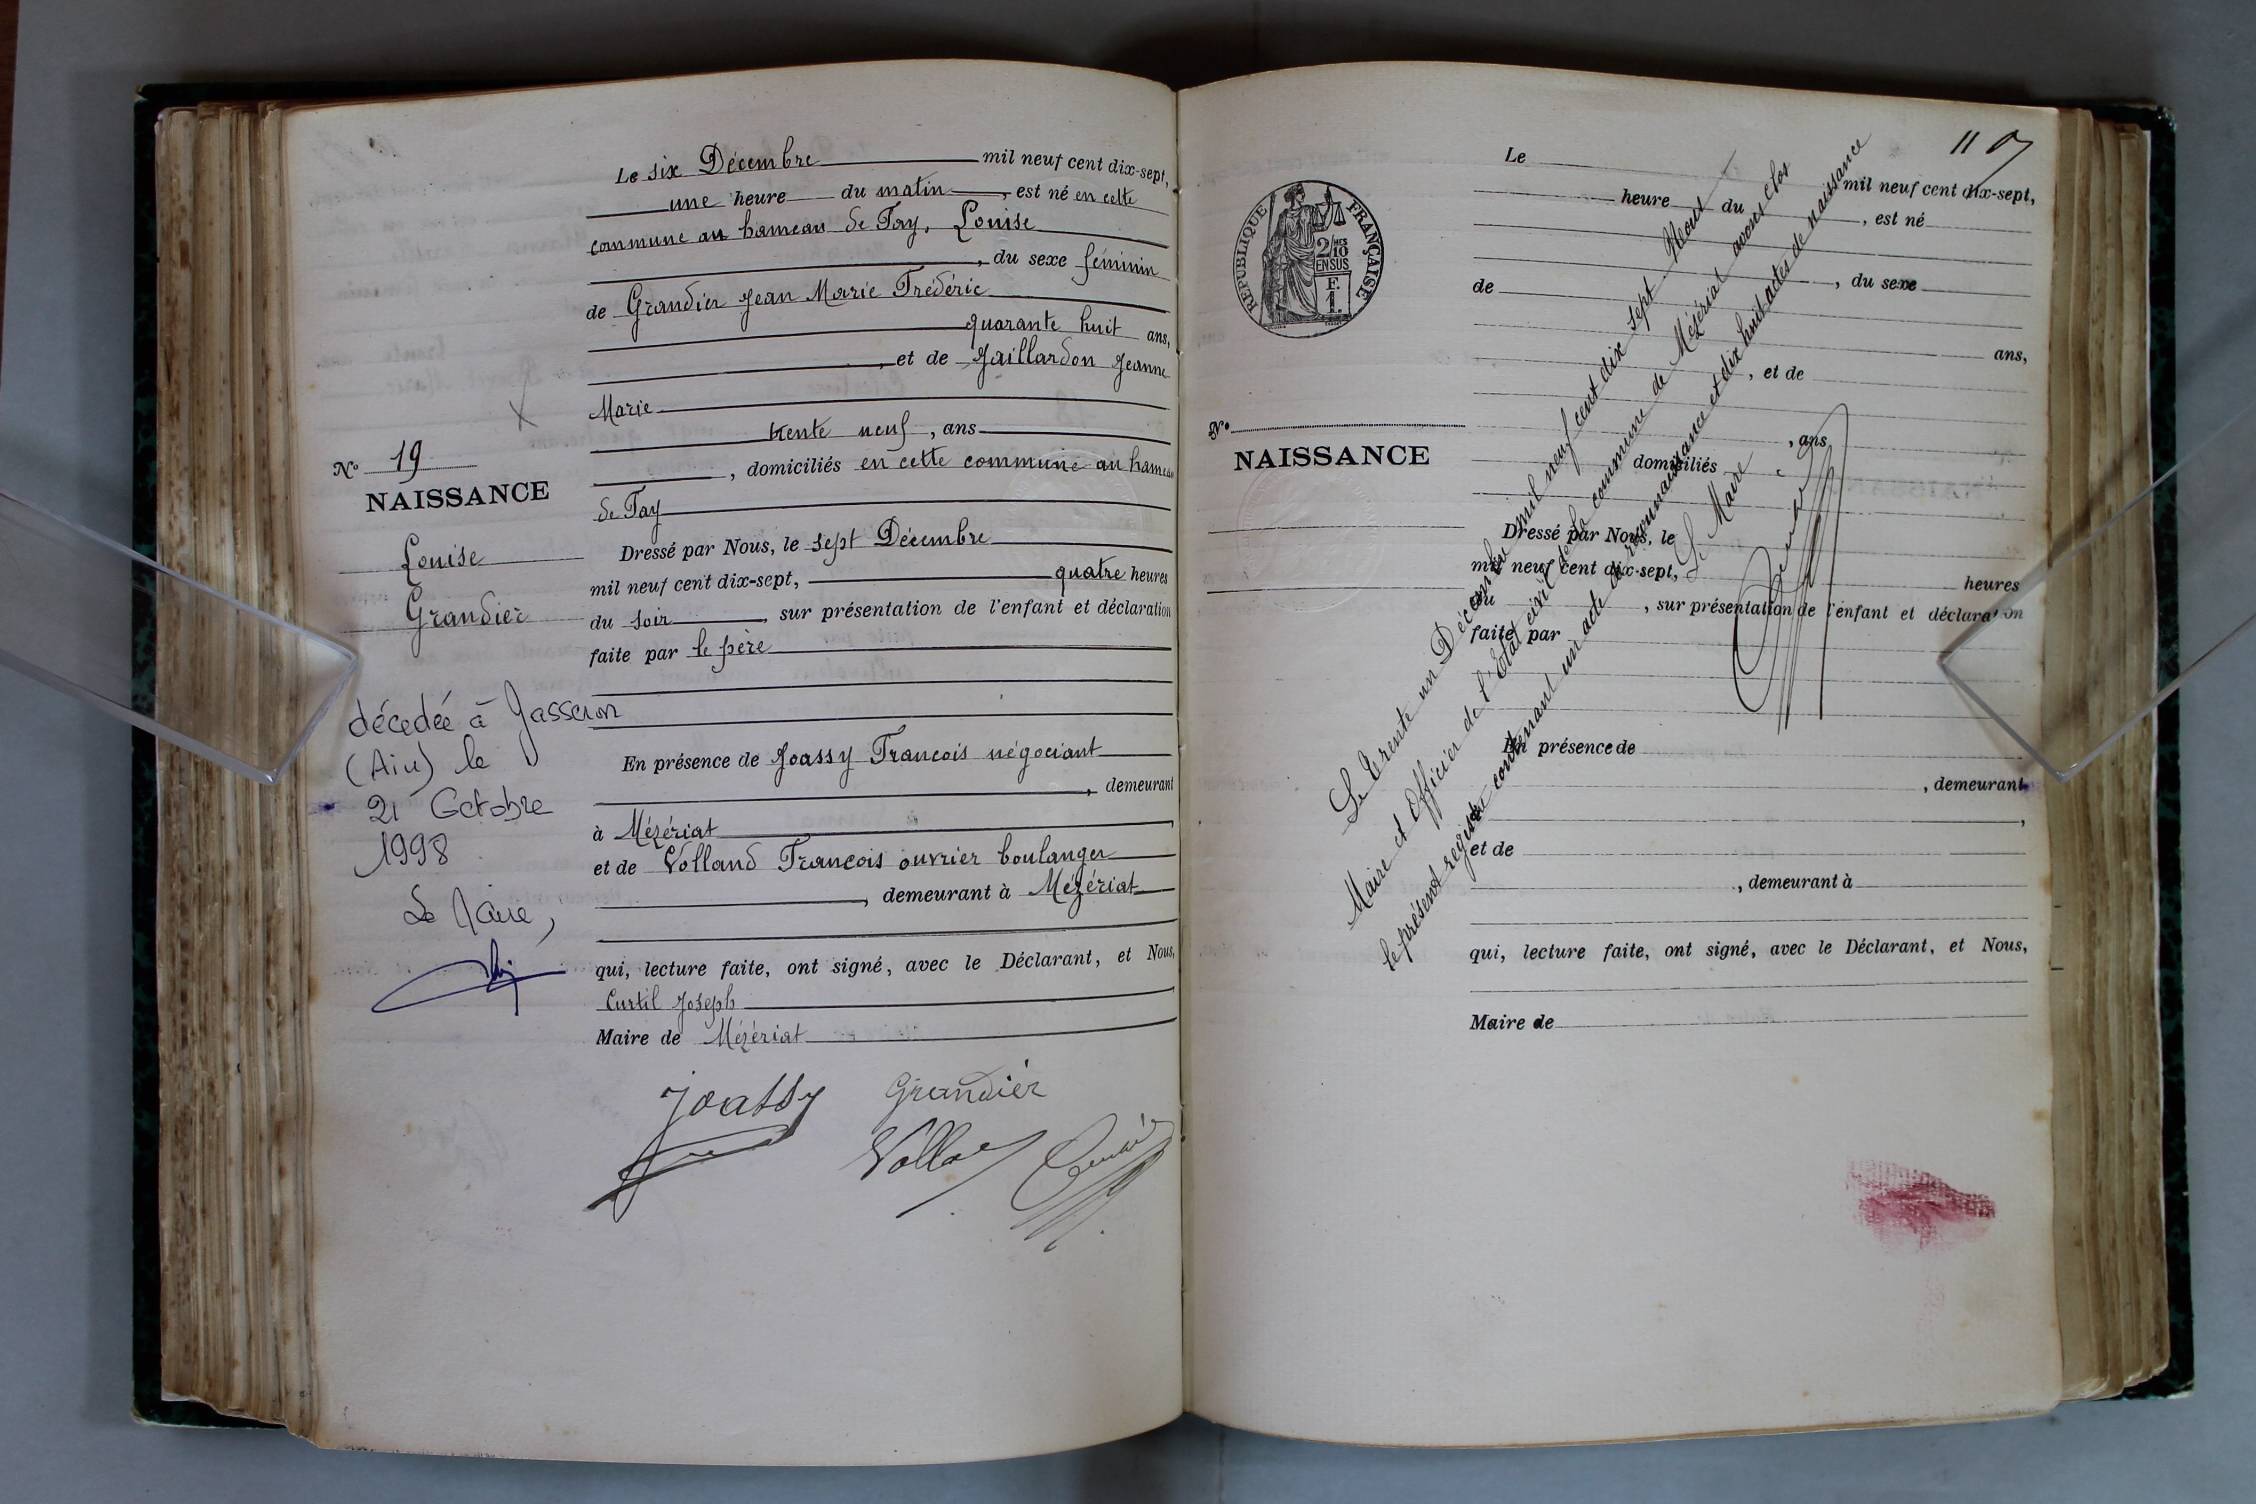 Le six Décembre mil neuf cent dix-sept,
une heure du matin, est né en cette
commune au hameau de Fay, Louise
, du sexe féminin
de Grandier Jean Marie Frédéric
quarante huit ans,
, et de Gaillardon Jeanne
Marie
trente neuf, ans
, domiciliés en cette commune au hameau
de Fay
Dressé par Nous, le sept Décembre
mil neuf cent dix-sept, quatre heures
du soir, sur présentation de l'enfant et déclaration
faite par le père
En présence de Joassy Francois négociant
, demeurant
à Mézériat
et de Volland Francois ouvrier boulanger
, demeurant à Mézériat
qui, lecture faite, ont signé, avec le Déclarant, et Nous,
Curtil Joseph
Maire de Mézériat
Joassy Grandier
No 19
NAISSANCE
Louise
Grandier
décedée à Jasseron
(Ain) le
21 Octobre
1998
Le Maire,
RÉPUBLIQUE FRANÇAISE
2/10
EN SUS
F.
1.
No
NAISSANCE
Le mil neuf cent dix-sept,
heure du , est né
, du sexe
de
ans,
, et de
, ans
domiciliés
Dressé par Nous, le
mil neuf cent dix-sept, heures
du , sur présentation de l'enfant et déclaration
faite par
En présence de
, demeurant
,
et de
, demeurant à
qui, lecture faite, ont signé, avec le Déclarant, et Nous,
Maire de
Le trente un Décembre mil neuf cent dix sept Nous
Maire et Officier de l'Etat civil de la commune de Mézériat avons clos
le présent registre contenant un acte de reconnaissance et dix huit actes de naissance
Le Maire